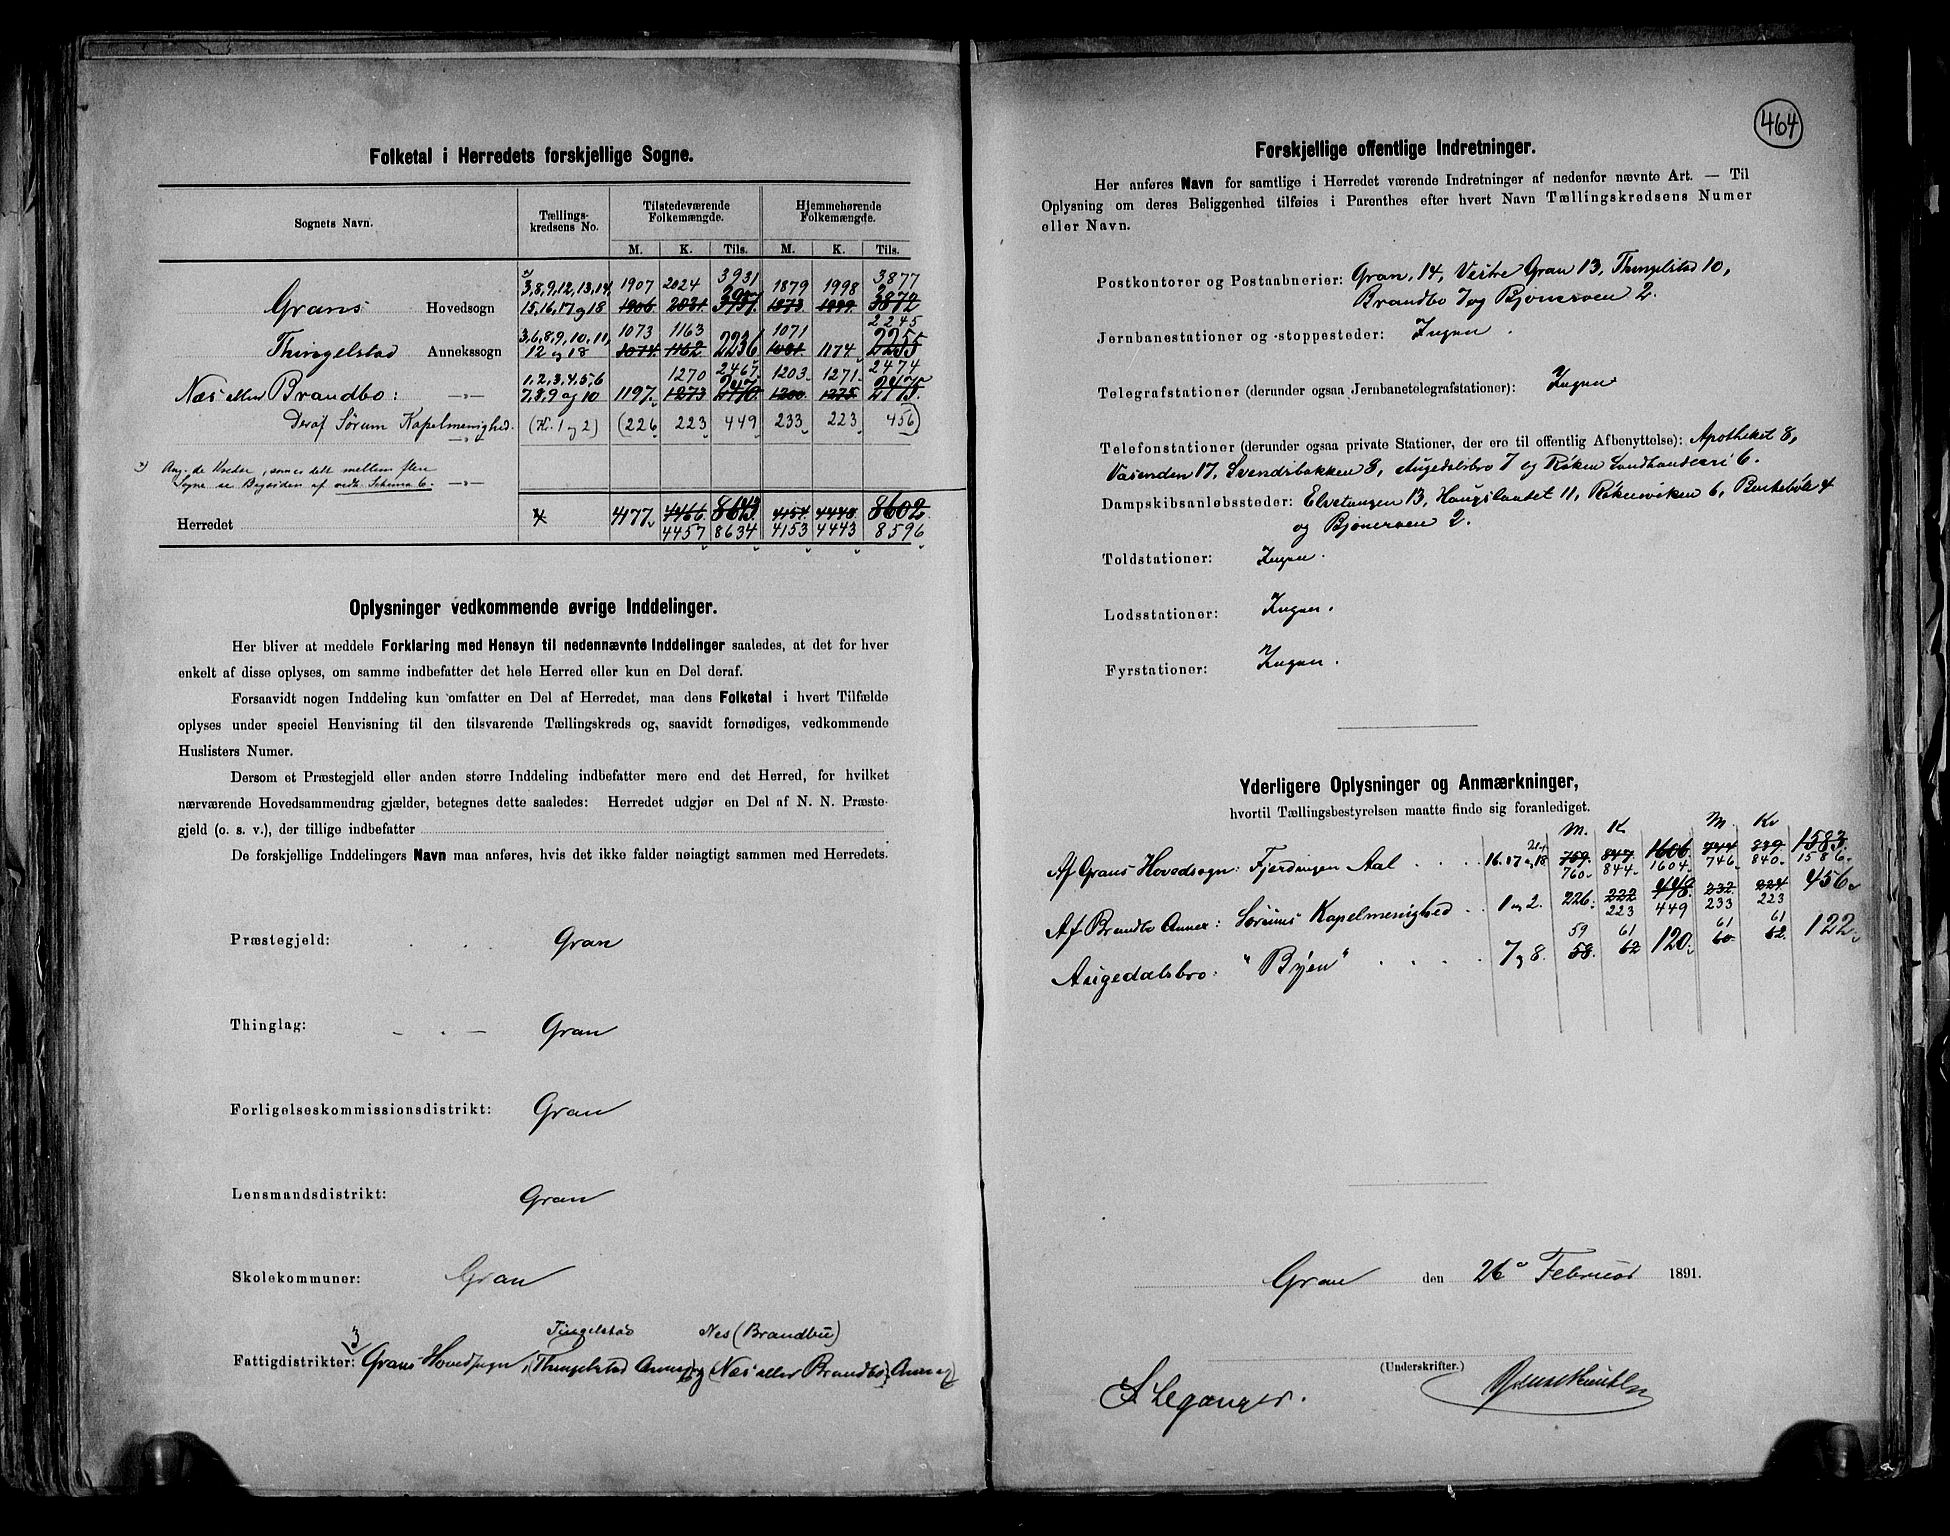 Folketal i Herredets forskjellige Sogne.
Sognets Navn. Tællings-kredsens No. Tilstedeværende Folkemængde. Hjemmehørende Folkemængde.
M. K. Tils. M. K. Tils.
3931 3877
3,8,9,12,13,14, 1907 2024 1879 1998
Grans Hovedsogn 15,16,17 og 18 1906 2031 3937 1873 1999 3872
2245
3,6,8,9,10,11, 1073 1163 1071
Thingelstad Annekssogn 12 og 18 1074 1162 2236 1081 1174 2255
1270 2467 1203 1271 2474
1,2,3,4,5,6
Næs eller Brandbo: -„- 7,8,9 og 10 1197 1273 2470 1200 1275 2475
Deraf Sørum Kapelmenighed. (Kr. 1 og 2) (226 223 449 233 223 456)
Ang. de Kredse, som er delt mellem flere
Sogne se Bagsiden af vedk. Schema 6. -„-
Herredet 4177 4466 8643 4154 4448 8602
4457 8634 4153 4443 8596
Oplysninger vedkommende øvrige Inddelinger.
Her bliver at meddele Forklaring med Hensyn til nedennævnte Inddelinger saaledes, at det for hver
enkelt af disse oplyses, om samme indbefatter det hele Herred eller kun en Del deraf.
Forsaavidt nogen Inddeling kun omfatter en Del af Herredet, maa dens Folketal i hvert Tilfælde
oplyses under speciel Henvisning til den tilsvarende Tællingskreds og, saavidt fornødiges, vedkommende
Huslisters Numer.
Dersom et Præstegjeld eller anden større Inddeling indbefatter mere end det Herred, for hvilket
nærværende Hovedsammendrag gjælder, betegnes dette saaledes: Herredet udgjør en Del af N. N. Præste-
gjeld (o. s. v.), der tillige indbefatter
De forskjellige Inddelingers Navn maa anføres, hvis det ikke falder nøiagtigt sammen med Herredets.
Præstegjeld: Gran
Thinglag: Gran
Forligelseskommissionsdistrikt: Gran
Lensmandsdistrikt: Gran
Skolekommuner: Gran
3 Tingelstad Nes (Brandbu)
Fattigdistrikter: Grans Hovedsogn, (Thingelstad Annex) og (Næs eller Brandbo) Annex
464
Forskjellige offentlige Indretninger.
Her anføres Navn for samtlige i Herredet værende Indretninger af nedenfor nævnte Art. — Til
Oplysning om deres Beliggenhed tilføies i Parenthes efter hvert Navn Tællingskredsens Numer
eller Navn.
Postkontorer og Postaabnerier: Gran, 14, Vestre Gran 13, Thingelstad 10,
Brandbo 7 og Bjoneroen 2.
Jernbanestationer og -stoppesteder: Ingen.
Telegrafstationer (derunder ogsaa Jernbanetelegrafstationer): Ingen
Telefonstationer (derunder ogsaa private Stationer, der ere til offentlig Afbenyttelse): Apotheket 8,
Vasenden 17, Svendsbakken 8, Augedalsbro 7 og Røken Landhandleri 6.
Dampskibsanløbssteder: Elvetangen 13, Haugslandet 11, Røkenviken 6, 4
og Bjoneroen 2.
Toldstationer: Ingen.
Lodsstationer: Ingen.
Fyrstationer: Ingen.
Yderligere Oplysninger og Anmærkninger,
hvortil Tællingsbestyrelsen maatte finde sig foranlediget.
M. K. M. Kv
Af Grans Hovedsogn: Fjerdingen Aal 16. 17 og 18 759. 847 1606 744 839 1583
760 844 1604 746 840 1586
Af Brandbo Annex: Sørums Kapelmenighed 1 og 2. 226 222 448 232 224 456
223 449 233 223
59 61 61 61
Augedalsbro: "Byen" 7 og 8. 58 62 120 60 62 122
Gran den 26 Februar 1891.
(Underskrifter.)
S Leganger.